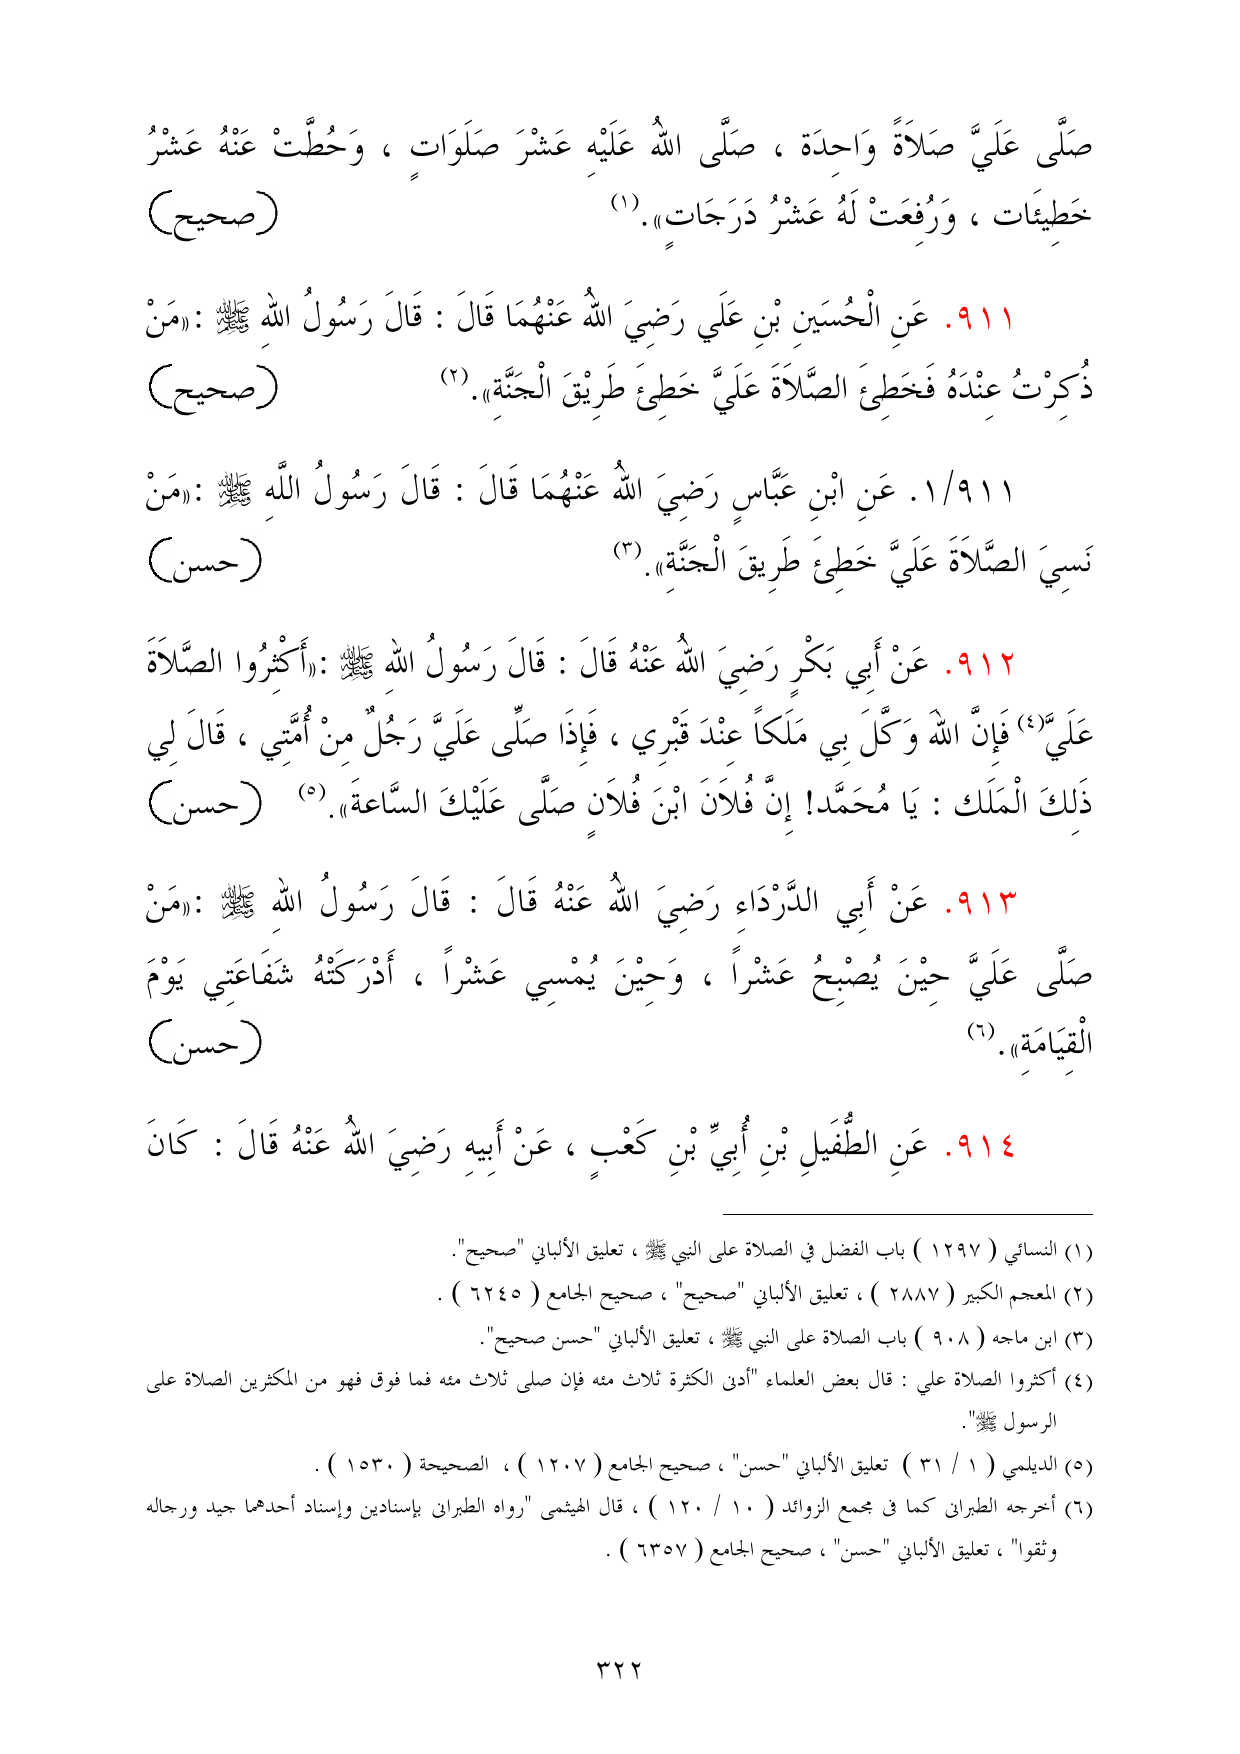 صَلَّى عَلَيَّ صَلاَةً وَاحِدَة ، صَلَّى اللهُ عَلَيْهِ عَشْرَ صَلَوَاتٍ ، وَحُطَّتْ عَنْهُ عَشْرُ
خَطِيئَات ، وَرُفِعَتْ لَهُ عَشْرُ دَرَجَاتٍ».(١) (صحيح)
٩١١. عَنِ الْحُسَينِ بْنِ عَلَي رَضِيَ اللهُ عَنْهُمَا قَالَ : قَالَ رَسُولُ اللهِ ﷺ :«مَنْ
ذُكِرْتُ عِنْدَهُ فَخَطِئَ الصَّلاَةَ عَلَيَّ خَطِئَ طَرِيْقَ الْجَنَّةِ».(٢) (صحيح)
١/٩١١. عَنِ ابْنِ عَبَّاسٍ رَضِيَ اللهُ عَنْهُمَا قَالَ : قَالَ رَسُولُ اللَّهِ ﷺ :«مَنْ
نَسِيَ الصَّلاَةَ عَلَيَّ خَطِئَ طَرِيقَ الْجَنَّةِ».(٣) (حسن)
٩١٢. عَنْ أَبِي بَكْرٍ رَضِيَ اللهُ عَنْهُ قَالَ : قَالَ رَسُولُ اللهِ ﷺ :«أَكْثِرُوا الصَّلاَةَ
عَلَيَّ(٤) فَإِنَّ اللهَ وَكَّلَ بِي مَلَكاً عِنْدَ قَبْرِي ، فَإِذَا صَلَّى عَلَيَّ رَجُلٌ مِنْ أُمَّتِي ، قَالَ لِي
ذَلِكَ الْمَلَك : يَا مُحَمَّد! إِنَّ فُلاَنَ ابْنَ فُلاَنٍ صَلَّى عَلَيْكَ السَّاعةَ».(٥) (حسن)
٩١٣. عَنْ أَبِي الدَّرْدَاءِ رَضِيَ اللهُ عَنْهُ قَالَ : قَالَ رَسُولُ اللهِ ﷺ :«مَنْ
صَلَّى عَلَيَّ حِيْنَ يُصْبِحُ عَشْراً ، وَحِيْنَ يُمْسِي عَشْراً ، أَدْرَكَتْهُ شَفَاعَتِي يَوْمَ
الْقِيَامَةِ».(٦) (حسن)
٩١٤. عَنِ الطُّفَيلِ بْنِ أُبيِّ بْنِ كَعْبٍ ، عَنْ أَبِيهِ رَضِيَ اللهُ عَنْهُ قَالَ : كَانَ
(١) النسائي ( ١٢٩٧ ) باب الفضل في الصلاة على النبي ﷺ ، تعليق الألباني "صحيح".
(٢) المعجم الكبير ( ٢٨٨٧ ) ، تعليق الألباني "صحيح" ، صحيح الجامع ( ٦٢٤٥ ) .
(٣) ابن ماجه ( ٩٠٨ ) باب الصلاة على النبي ﷺ ، تعليق الألباني "حسن صحيح".
(٤) أكثروا الصلاة علي : قال بعض العلماء "أدنى الكثرة ثلاث مئه فإن صلى ثلاث مئه فما فوق فهو من المكثرين الصلاة على
الرسول ﷺ".
(٥) الديلمي ( ١ / ٣١ ) تعليق الألباني "حسن" ، صحيح الجامع ( ١٢٠٧ ) ، الصحيحة ( ١٥٣٠ ) .
(٦) أخرجه الطبرانى كما فى مجمع الزوائد ( ١٠ / ١٢٠ ) ، قال الهيثمى "رواه الطبرانى بإسنادين وإسناد أحدهما جيد ورجاله
وثقوا" ، تعليق الألباني "حسن" ، صحيح الجامع ( ٦٣٥٧ ) .
٣٢٢